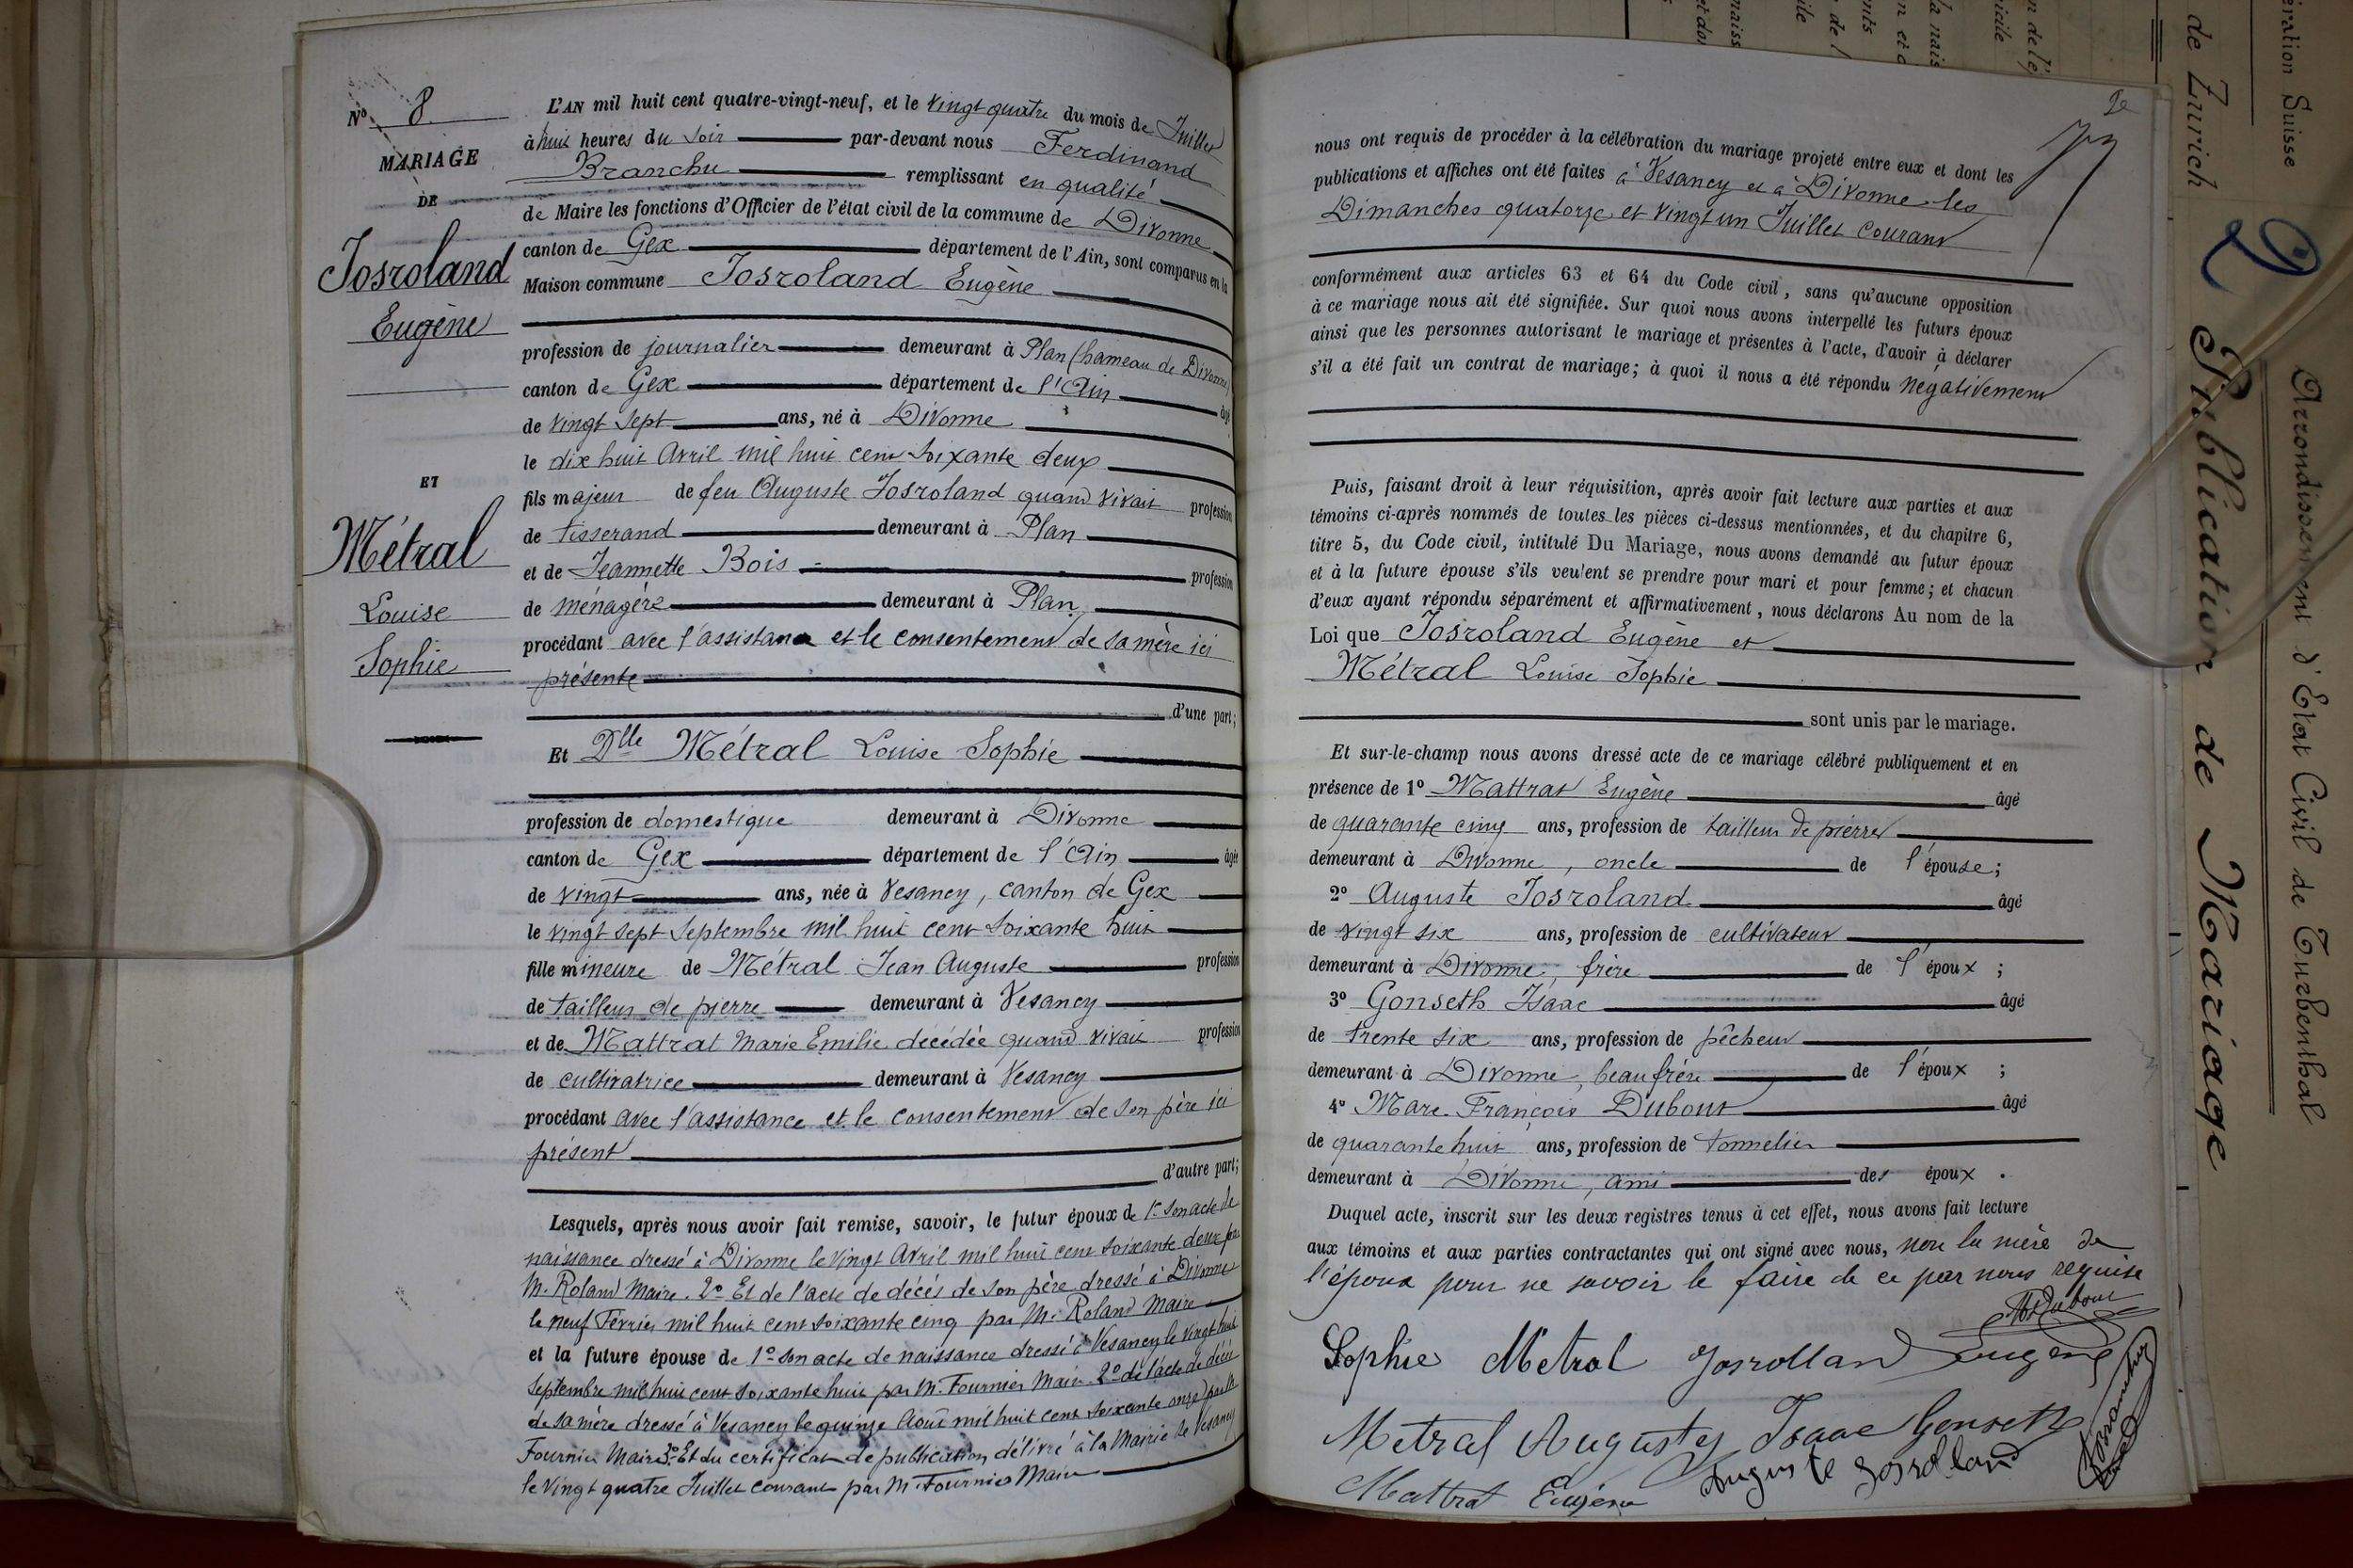 No 8
MARIAGE
DE
Josroland
Eugène
ET
Métral
Louise
Sophie
L'AN mil huit cent quatre-vingt-neuf, et le vingt quatre du mois de Juillet
à huit heures du soir par-devant nous Ferdinand
Branchu remplissant en qualité
de Maire les fonctions d'Officier de l'état civil de la commune de Divonne
canton de Gex département de l'Ain, sont comparus en la
Maison commune Josroland Eugène
profession de journalier demeurant à Plan (hameau de Divonne)
canton de Gex département de l'Ain âgé
de vingt sept ans, né à Divonne
le dix huit Avril mil huit cent soixante deux
fils majeur de feu Auguste Josroland quand vivait profession
de tisserand demeurant à Plan
et de Jeannette Bois profession
de ménagère demeurant à Plan
procédant avec l'assistance et le consentement de sa mère ici
présente
d'une part;
Et Dlle Métral Louise Sophie
profession de domestique demeurant à Divonne
canton de Gex département de l'Ain âgée
de vingt ans, née à Vesancy, canton de Gex
le vingt sept Septembre mil huit cent soixante huit
fille mineure de Métral Jean Auguste profession
de tailleur de pierre demeurant à Vesancy
et de Mattrat Marie Emilie décédée quand vivait profession
de cultivatrice demeurant à Vesancy
procédant avec l'assistance et le consentement de son père ici
présent
d'autre part;
Lesquels, après nous avoir fait remise, savoir, le futur époux de 1° son acte de
naissance dressé à Divonne le vingt Avril mil huit cent soixante deux par
M. Roland Maire. 2° Et de l'acte de décès de son père dressé à Divonne
le neuf Février mil huit cent soixante cinq par M. Roland Maire
et la future épouse de 1° son acte de naissance dressé à Vesancy le vingt huit
Septembre mil huit cent soixante huit par M. Fournier Maire 2° de l'acte de décès
de sa mère dressé à Vesancy le quinze Août mil huit cent soixante onze par M.
Fournier Maire 3° Et du certificat de publication délivré à la Mairie de Vesancy
le vingt quatre Juillet courant par M. Fournier Maire
nous ont requis de procéder à la célébration du mariage projeté entre eux et dont les
publications et affiches ont été faites à Vesancy et à Divonne les
Dimanches quatorze et vingt un Juillet courant
conformément aux articles 63 et 64 du Code civil, sans qu'aucune opposition
à ce mariage nous ait été signifiée. Sur quoi nous avons interpellé les futurs époux
ainsi que les personnes autorisant le mariage et présentes à l'acte, d'avoir à déclarer
s'il a été fait un contrat de mariage; à quoi il nous a été répondu négativement
Puis, faisant droit à leur réquisition, après avoir fait lecture aux parties et aux
témoins ci-après nommés de toutes les pièces ci-dessus mentionnées, et du chapitre 6,
titre 5, du Code civil, intitulé Du Mariage, nous avons demandé au futur époux
et à la future épouse s'ils veulent se prendre pour mari et pour femme; et chacun
d'eux ayant répondu séparément et affirmativement, nous déclarons Au nom de la
Loi que Josroland Eugène et
Métral Louise Sophie
sont unis par le mariage.
Et sur-le-champ nous avons dressé acte de ce mariage célébré publiquement et en
présence de 1° Mattrat Eugène âgé
de quarante cinq ans, profession de tailleur de pierres
demeurant à Divonne, oncle de l'épouse;
2° Auguste Josroland âgé
de vingt six ans, profession de cultivateur
demeurant à Divonne, frère de l'époux;
3° Gonseth Isaac âgé
de trente six ans, profession de pêcheur
demeurant à Divonne, beau frère de l'époux;
4° Marc François Dubout âgé
de quarante huit ans, profession de tonnelier
demeurant à Divonne, ami des époux.
Duquel acte, inscrit sur les deux registres tenus à cet effet, nous avons fait lecture
aux témoins et aux parties contractantes qui ont signé avec nous, non la mère de
l'époux pour ne savoir le faire de ce par nous requise
Sophie Metral Josrolland Eugène
Metral Auguste Isaac Gonseth
Mattrat Eugène Auguste Josrolland
Branchu
de Zurich
2 Publication de Mariage
Arrondissement d'Etat Civil de Turbenthal